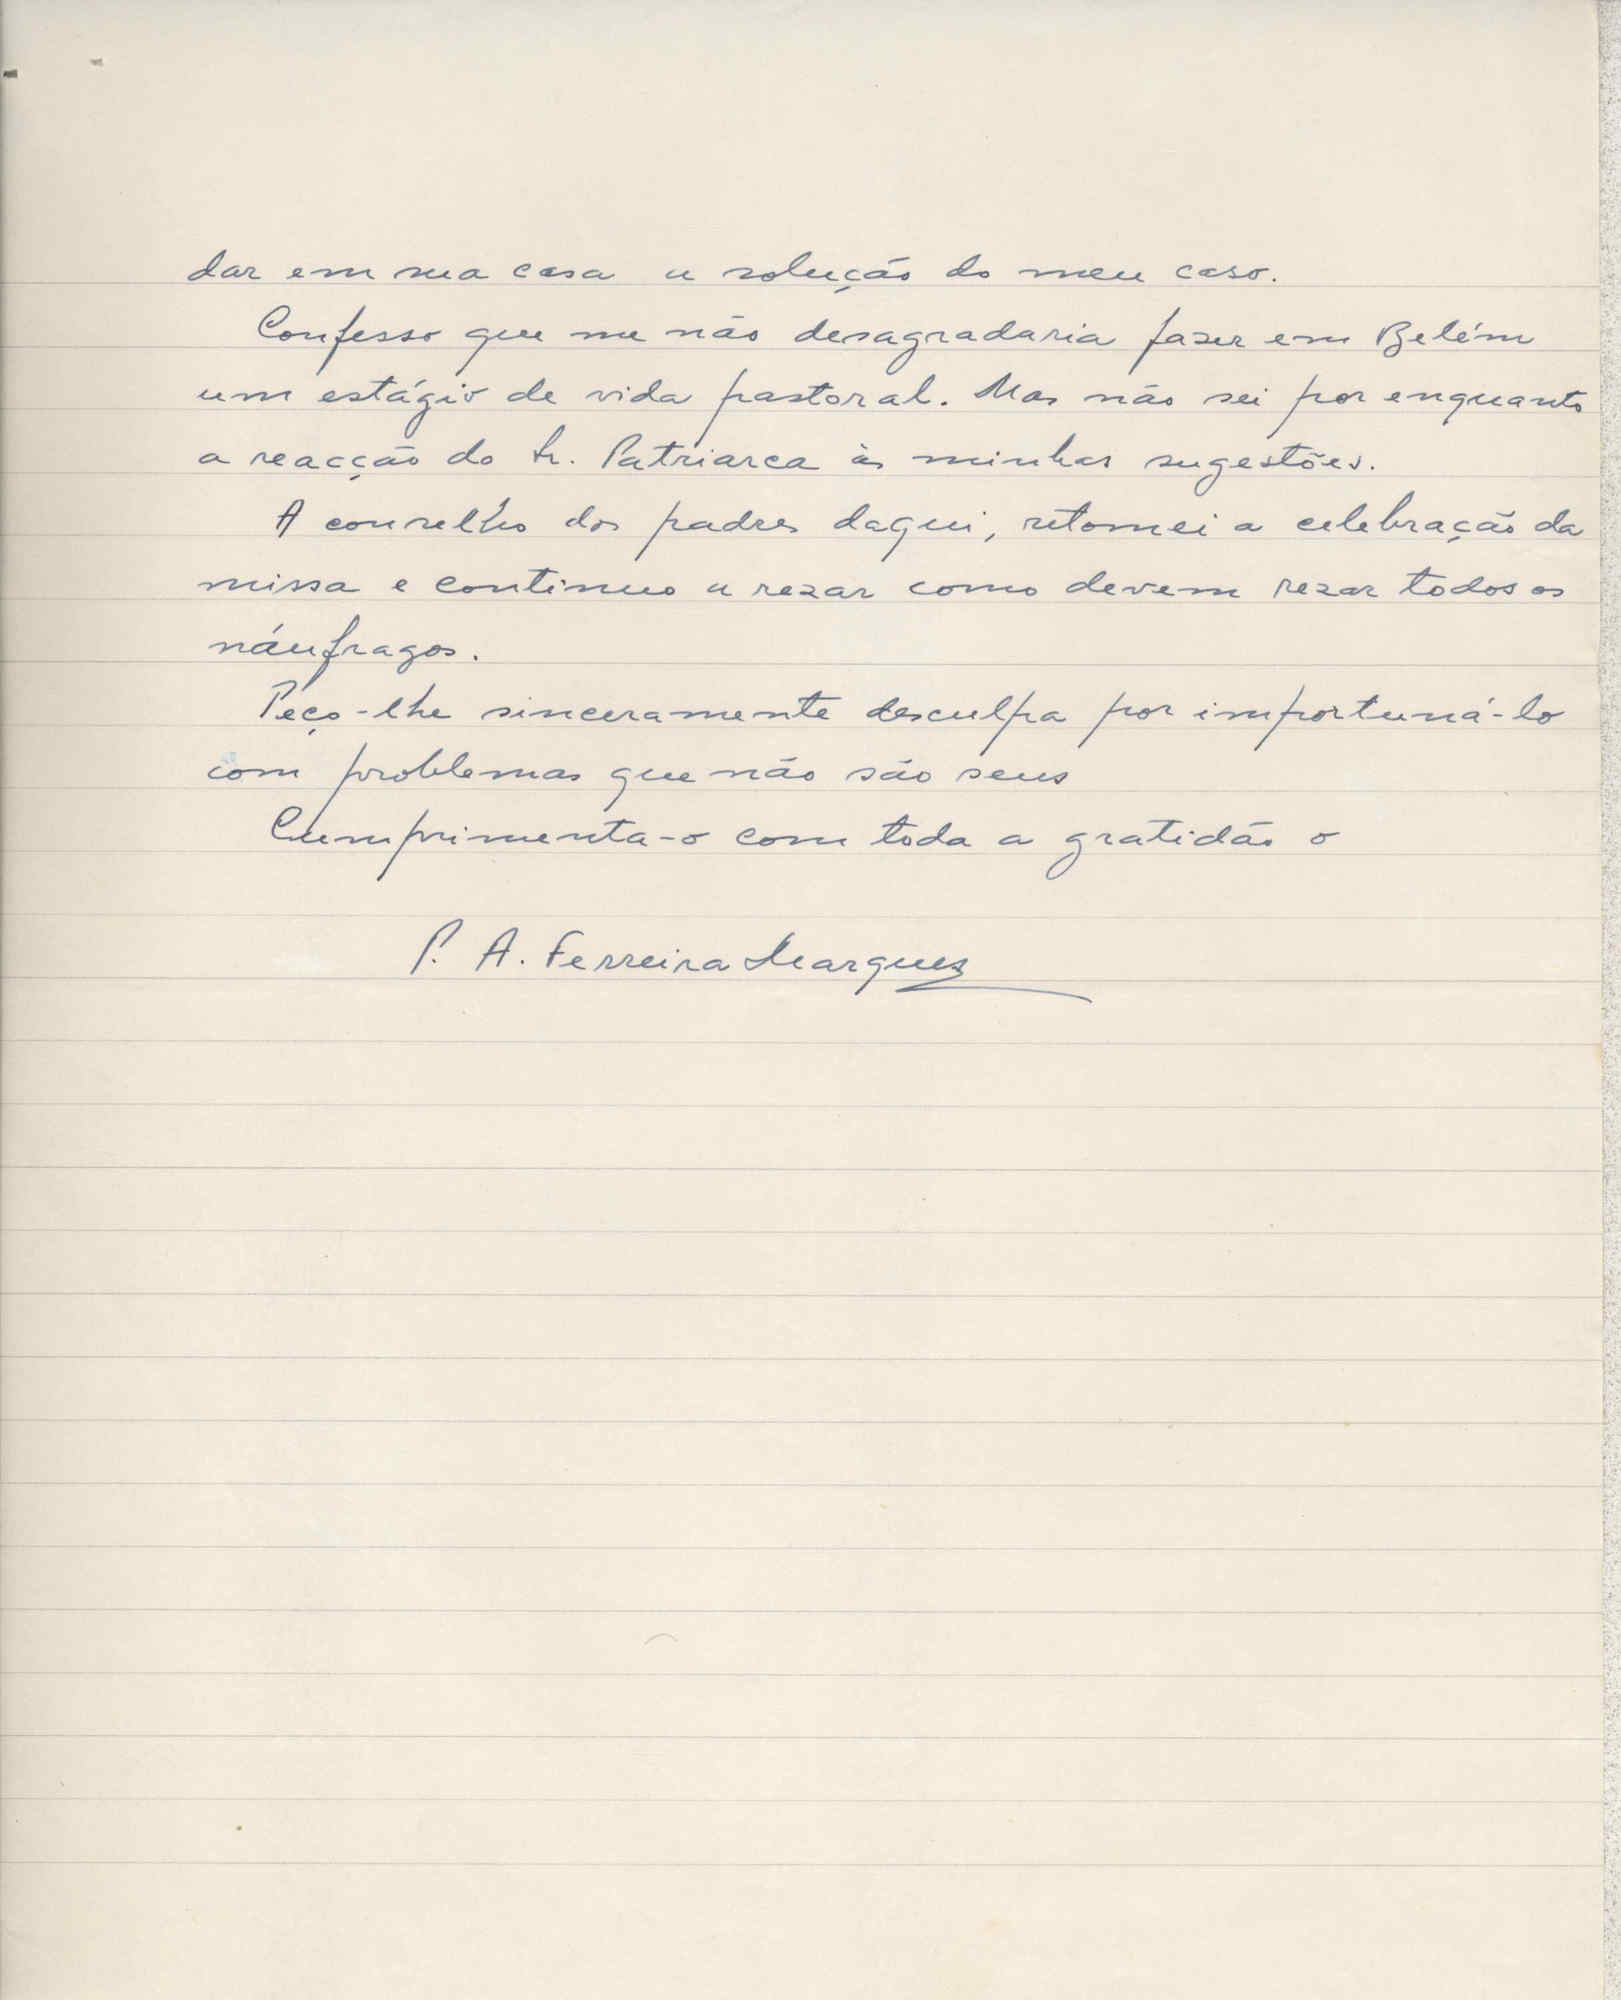 dar em sua casa a solução do meu caso.
Confesso que me não desagradaria fazer em Belém
um estágio de vida pastoral. Mas não sei por enquanto
a reacção do Sr. Patriarca às minhas sugestões.
A conselho dos padres daqui, retomei a celebração da
missa e continuo a rezar como devem rezar todos os
náufragos.
Peço-lhe sinceramente desculpa por importuná-lo
com problemas que não são seus
Cumprimenta-o com toda a gratidão o
P. A. Ferreira Marques